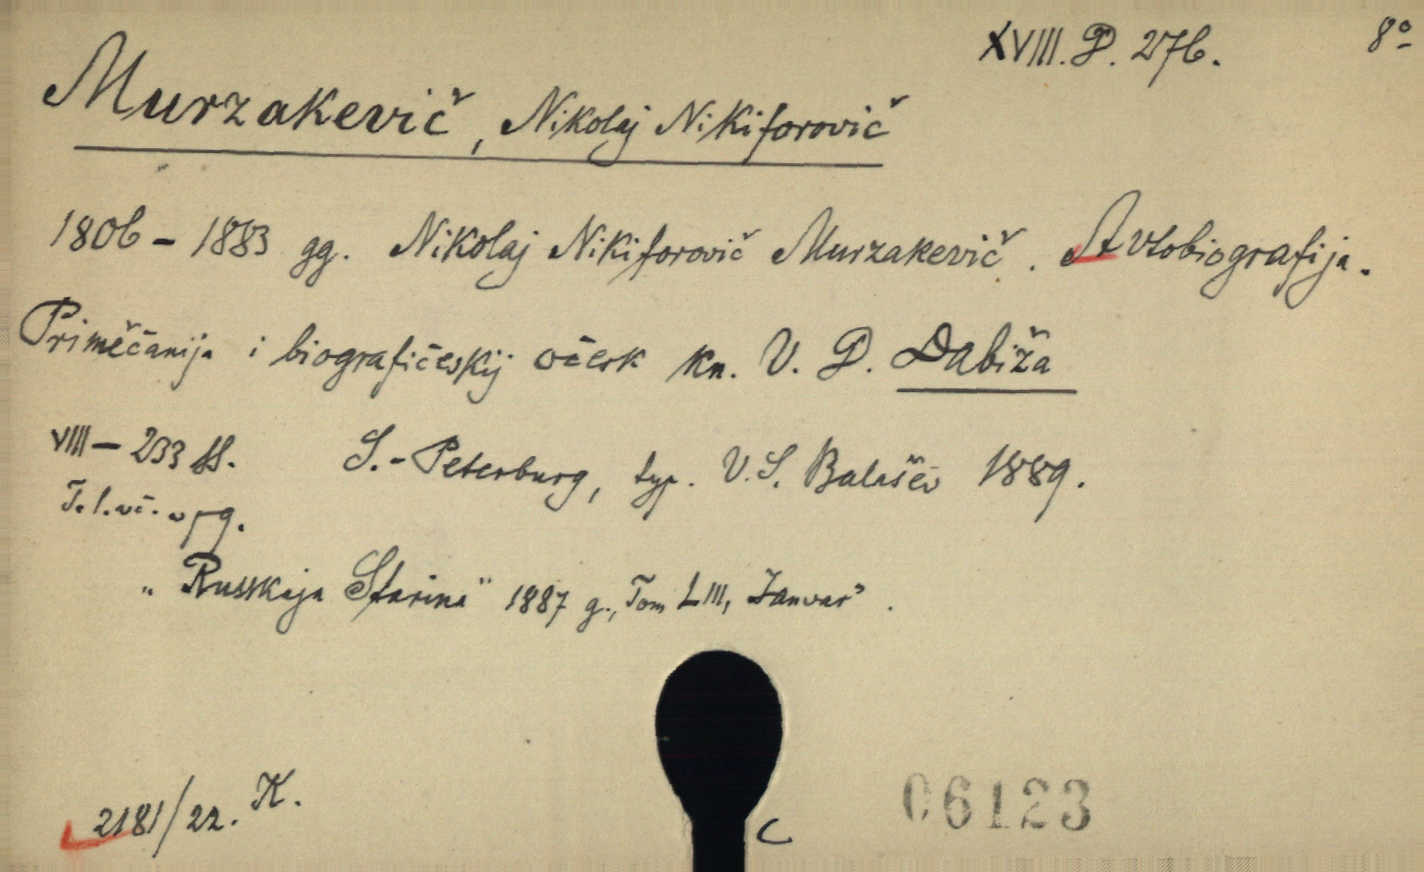 XVIII. D. 276. 8°
Murzakevič, Nikolaj Nikiforovič
1806 – 1883 gg. Nikolaj Nikiforovič Murzakevič. Avtobiografija.
Priměčanija i biografičeskij očerk kn. V. D. Dabiža
VIII – 233 SS. S.-Peterburg, typ. V. S. Balašev 1889.
"Russkaja Starina" 1887 g., Tom LIII, Janvar'.
2181/22. K.
C
06123